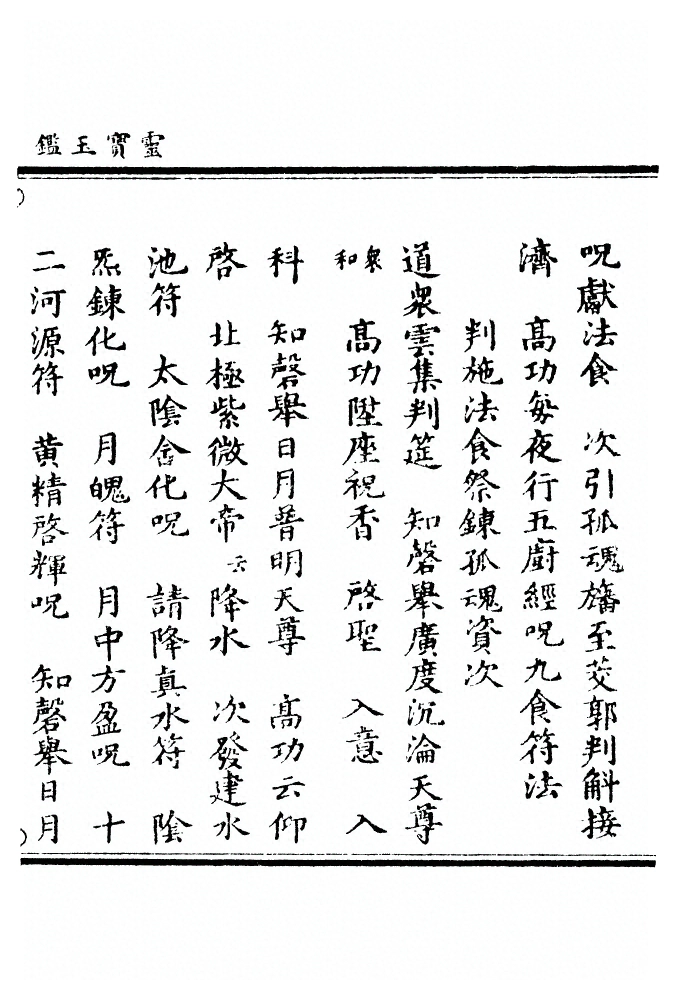 靈寶玉鑑
呪獻法食　次引孤魂旛至茭郭判斛接
濟　高功每夜行五廚經呪九食符法
判施法食祭鍊孤魂資次
道衆雲集判筵　知磬舉廣度沉淪天尊
衆和　高功陞座祝香　啓聖　入意　入
科　知磬舉日月普明天尊　高功云仰
啓　北極紫微大帝云降水　次發建水
池符　太陰含化呪　請降真水符　陰
炁鍊化呪　月魄符　月中方盈呪　十
二河源符　黄精啓輝呪　知磬舉日月